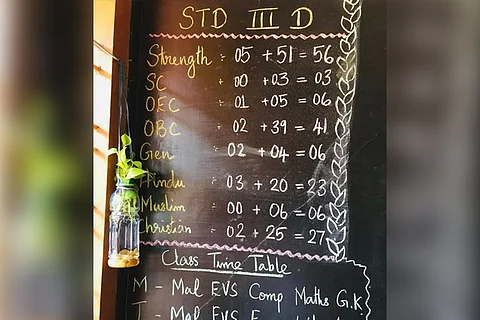 STD III D
Strength : 05 + 51 = 56
SC : 00 + 03 = 03
OEC : 01 + 05 = 06
OBC : 02 + 39 = 41
Gen : 02 + 04 = 06
Hindu : 03 + 20 = 23
Muslim : 00 + 06 = 06
Christian : 02 + 25 = 27
Class Time Table
M - Mal EVS Comp Maths G.K.
T - Mal EVS